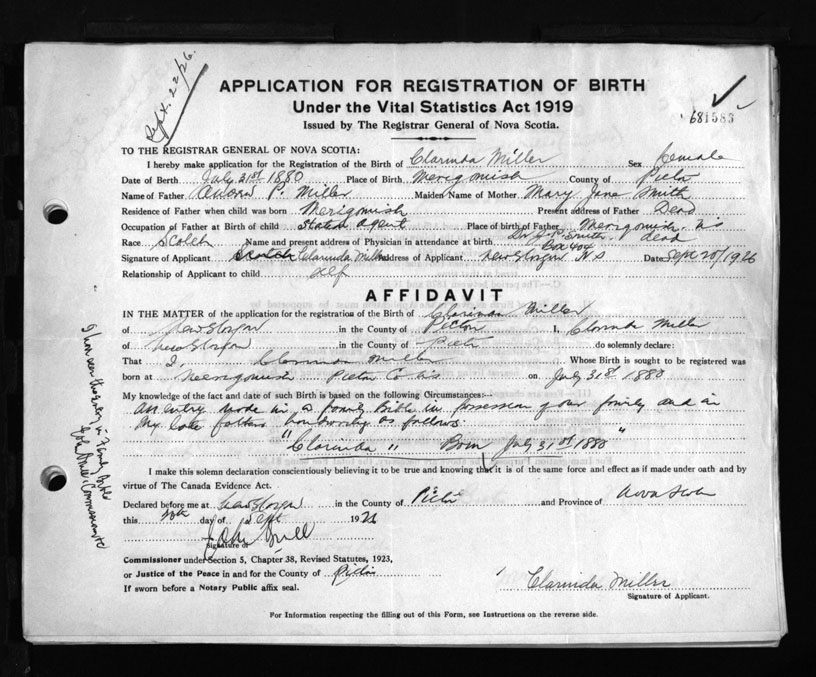 Sept. 22/26.
APPLICATION FOR REGISTRATION OF BIRTH
Under the Vital Statistics Act 1919
Issued by The Registrar General of Nova Scotia.
681583
TO THE REGISTRAR GENERAL OF NOVA SCOTIA:
I hereby make application for the Registration of the Birth of Clarinda Miller Sex female
Date of Birth July 31st 1880 Place of Birth Merigomish County of Pictou
Name of Father P. Miller Maiden Name of Mother Mary Jane Smith
Residence of Father when child was born Merigomish Present address of Father Dead
Occupation of Father at Birth of child Station Agent Place of birth of Father Merigomish NS
Race Scotch Name and present address of Physician in attendance at birth Dr Smith dead
Box 404
Signature of Applicant Clarinda Miller Address of Applicant New Glasgow N S Date Sept 20/1926
Relationship of Applicant to child Self
AFFIDAVIT
IN THE MATTER of the application for the registration of the Birth of Clarinda Miller
of New Glasgow in the County of Pictou I, Clarinda Miller
of New Glasgow in the County of Pictou do solemnly declare:
That I, Clarinda Miller Whose Birth is sought to be registered was
born at Merigomish Pictou Co NS on July 31st 1880
My knowledge of the fact and date of such Birth is based on the following Circumstances:--
An entry made in a family Bible in possession of our family and in
my late fathers handwriting as follows:
"Clarinda" Born July 31st 1880"
I make this solemn declaration conscientiously believing it to be true and knowing that it is of the same force and effect as if made under oath and by
virtue of The Canada Evidence Act.
Declared before me at New Glasgow in the County of Pictou and Province of Nova Scotia
this day of Sept 1926
Signature of
Commissioner under Section 5, Chapter 38, Revised Statutes, 1923,
or Justice of the Peace in and for the County of Pictou
If sworn before a Notary Public affix seal.
Clarinda Miller
Signature of Applicant.
For Information respecting the filling out of this Form, see Instructions on the reverse side.
I have seen the Entry in Family Bible